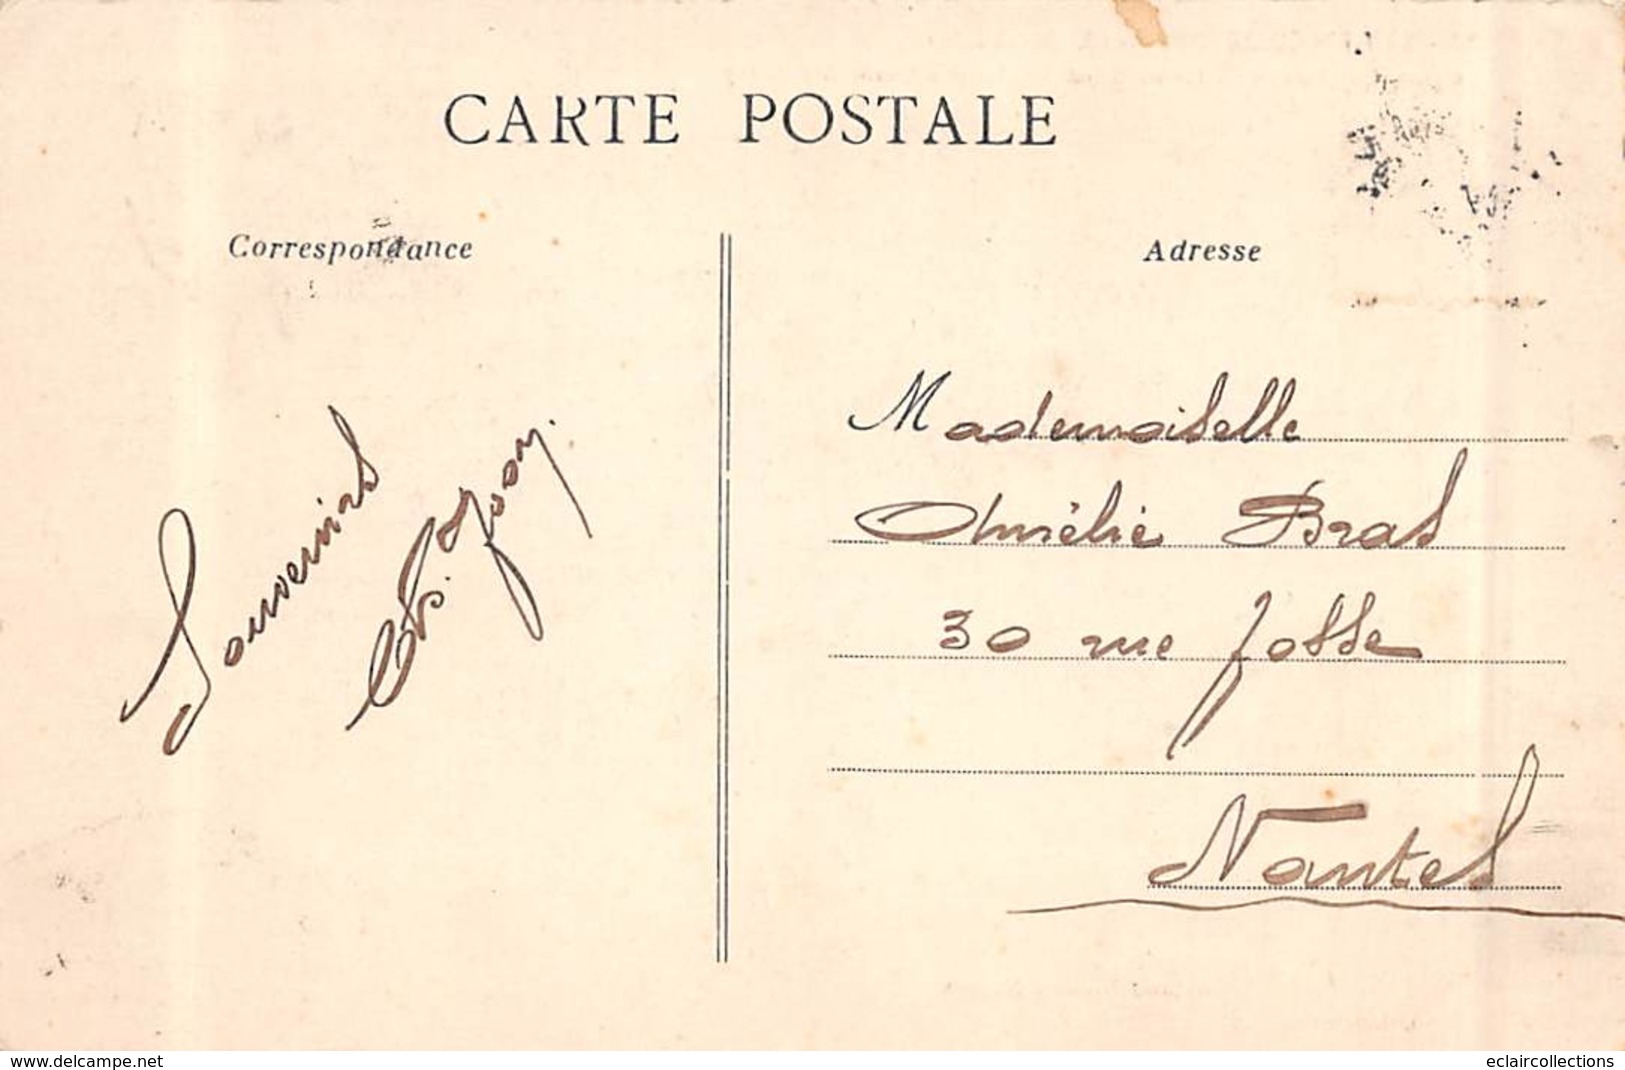 CARTE POSTALE
Correspondance
Adresse
Souvenirs
Mademoiselle
Amélie Bras
30 rue fosse
Nantes
www.delcampe.net
eclaircollections